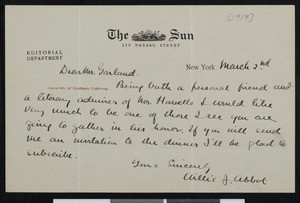 [1919]
The Sun
150 NASSAU STREET
EDITORIAL
DEPARTMENT
New York March 2nd
Dear Mr. Garland.
University of Southern California
Being both a personal friend and
a literary admirer of Mr. Howells I would like
very much to be one of those I see you are
going to gather in his honor. If you will send
me an invitation to the dinner I'll be glad to
subscribe.
Yours Sincerely
Willis J. Abbot